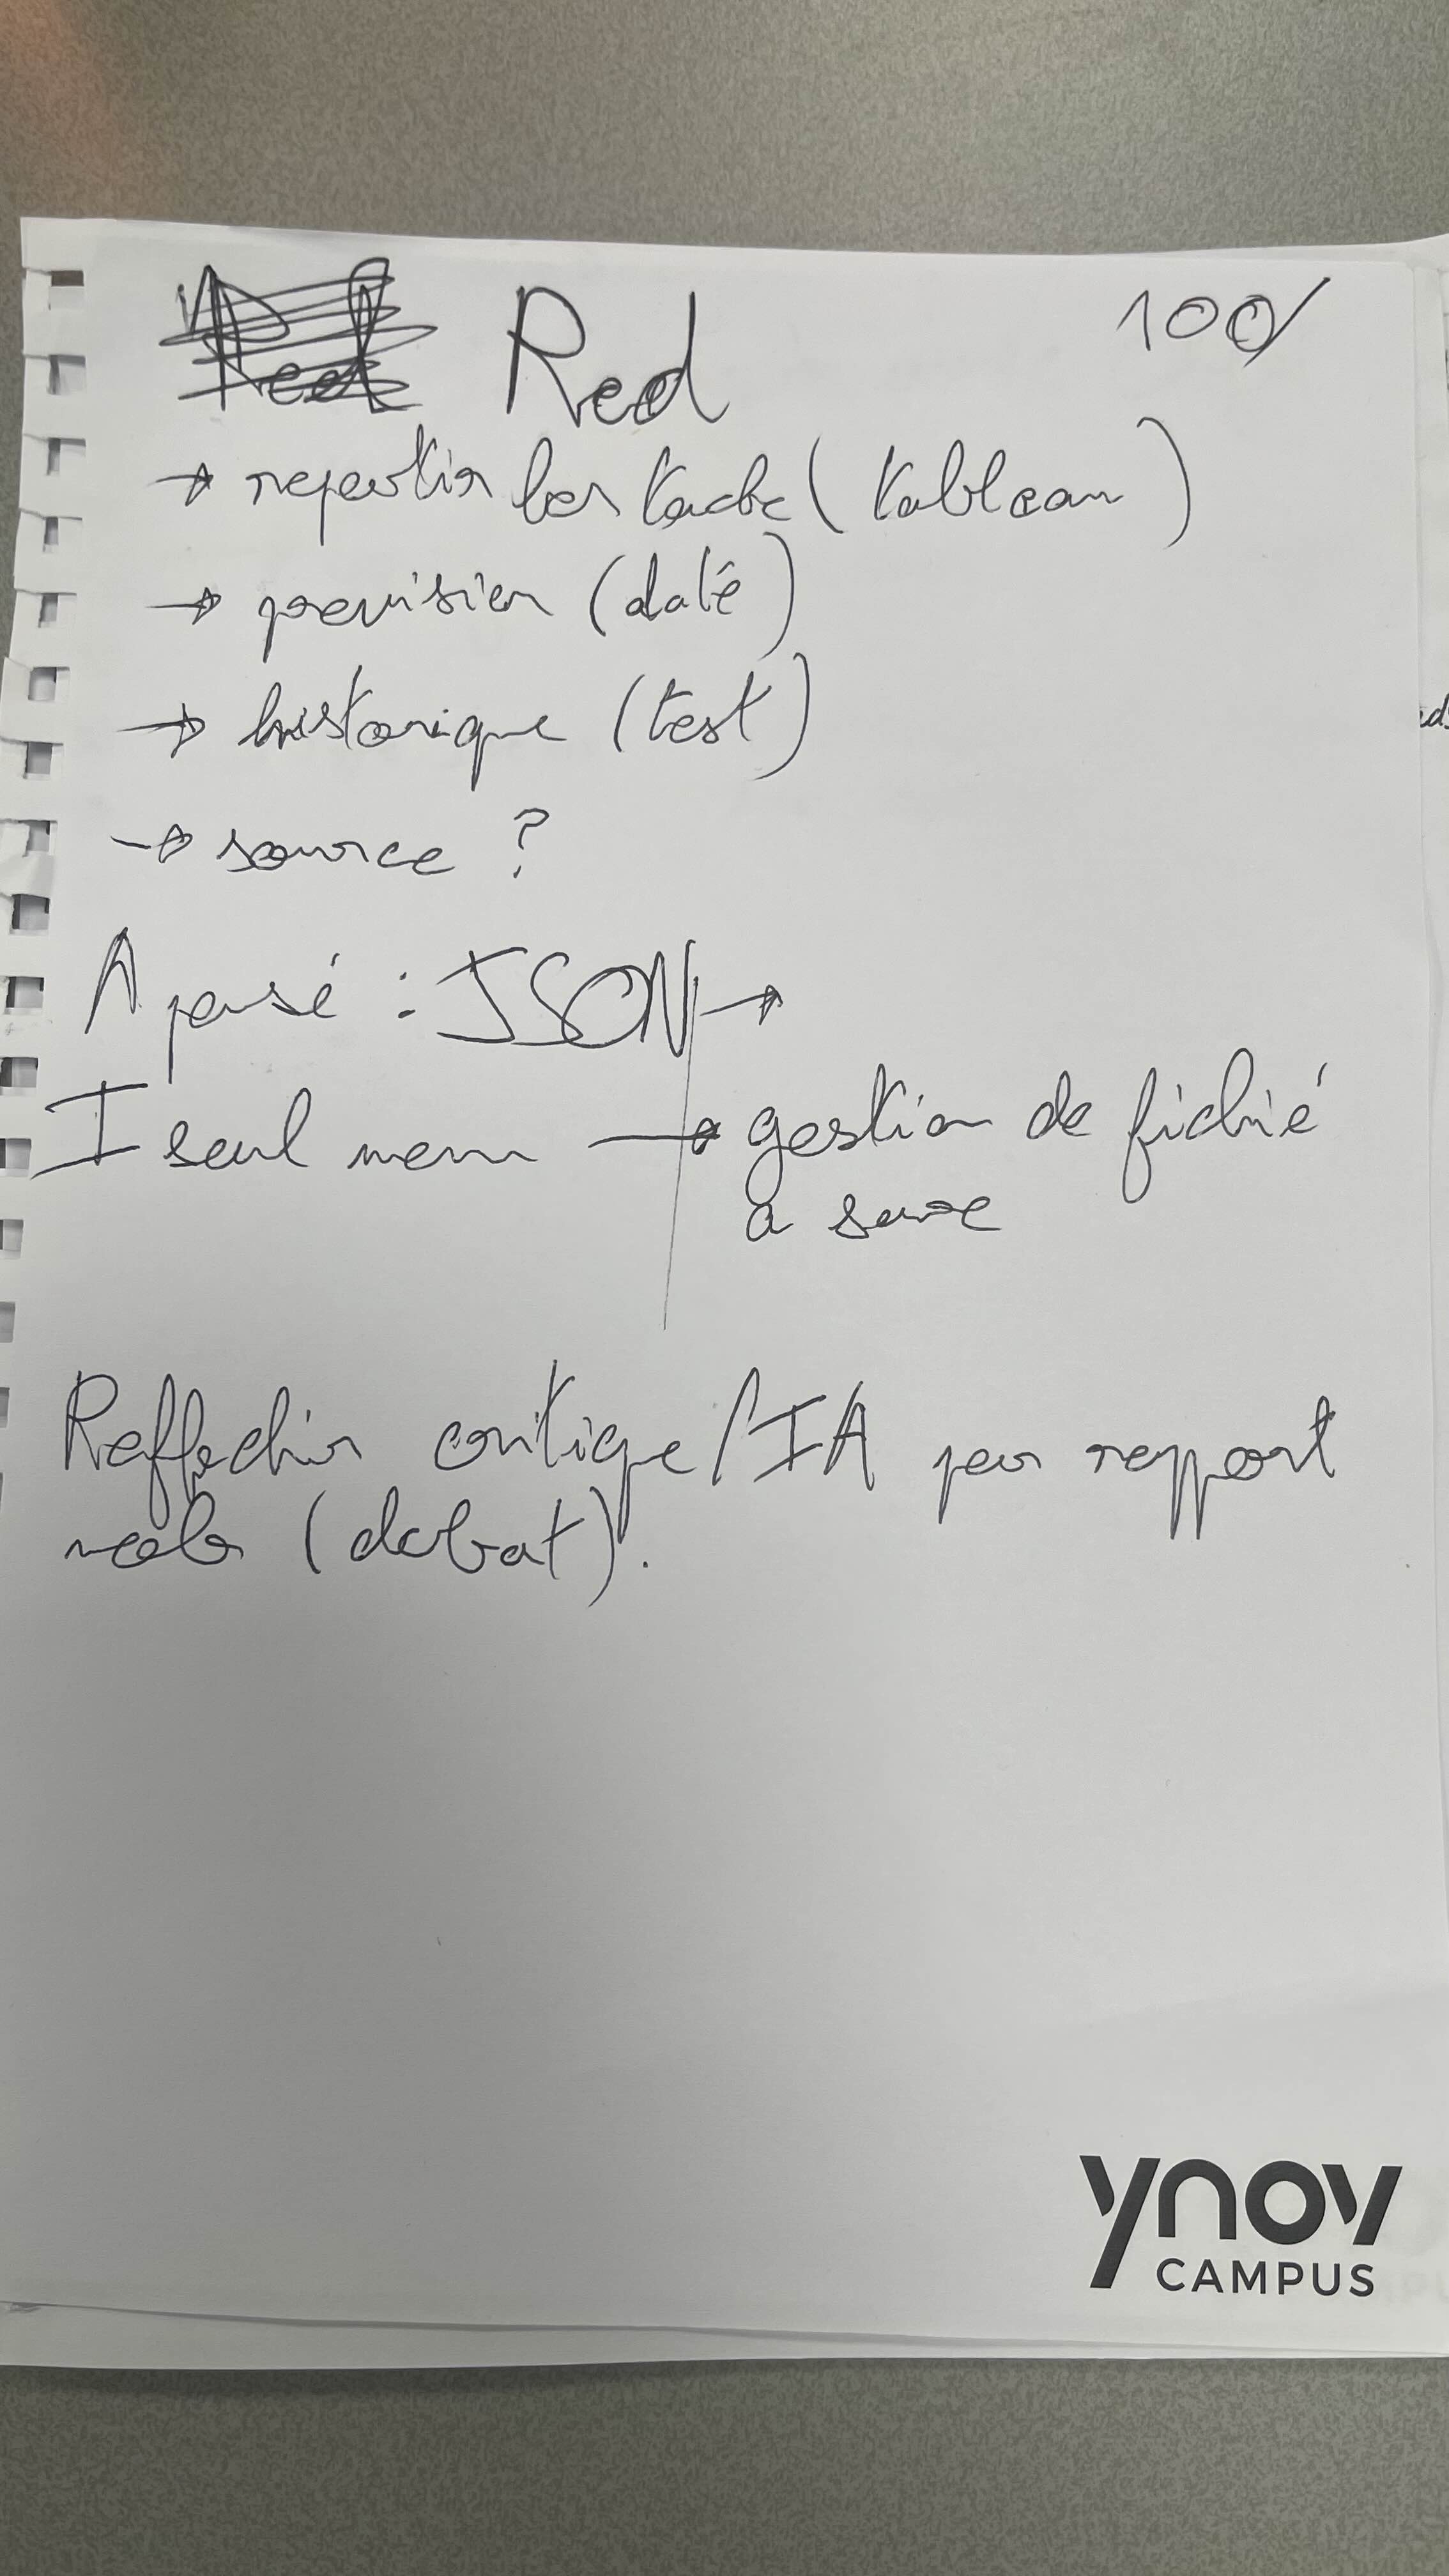 Red Red 100/
→ repartir les tache (tableau)
→ prevision (daté)
→ historique (test)
→ source ?
A pensé : JSON →
I seul menu → gestion de fichié
a save
Refflechir critique/IA par rapport
web (debat).
ynov
CAMPUS